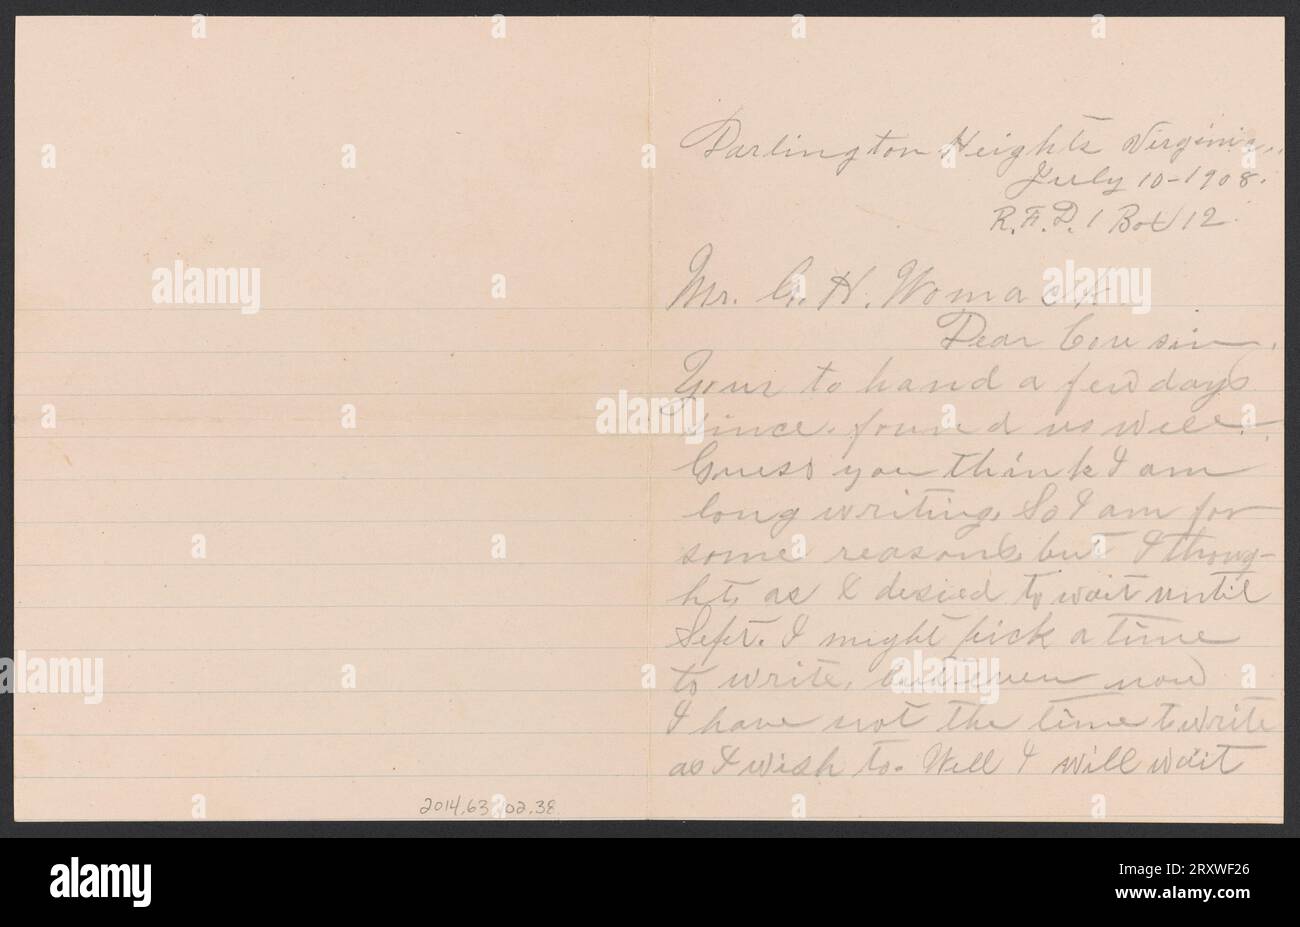 Darlington Heights Virginia.,
July 10-1908.
R.F.D. 1 Box 12.
Mr. G. H. Womack
Dear Cousin,
Your to hand a few days
since. found us well.
Guess you think I am
long writing. So I am for
some reasons, but I thoug-
ht, as I desied to wait until
Sept. I might pick a time
to write, but even now
I have not the time to write
as I wish to. Well I will wait
2014.63.02.38
alamy
Image ID: 2RXWF26
www.alamy.com